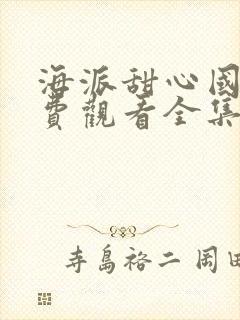 海派甜心國
費觀看全集
寺島裕二 岡田